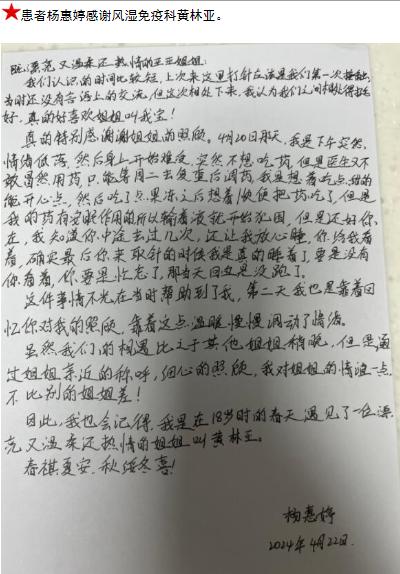 ★患者杨惠婷感谢风湿免疫科黄林亚。
既漂亮又温柔还热情的亚亚姐姐:
我们认识的时间比较短,上次来这里打针应该是我们第一次接触,
当时还没有言语上的交流,但这次相处下来,我认为我们之间相处得挺
好,真的好喜欢姐姐叫我宝!
真的特别感谢姐姐的照顾。4月20日那天,我是下午突然
情绪低落,然后身上开始难受,突然不想吃药,但是医生又不
敢冒然用药,只能等周二去复查后调药,我是想着吃点甜的
能开心点,然后吃了点果冻之后想着顺便把药吃了,但是
我的药有安眠作用的所以输着液就开始犯困,但是还好你
在,我知道你中途去过几次,还让我放心睡,你给我看
着,确实最后你来取针的时候我是真的睡着了,要是没有
你看着,你要是忙忘了,那当天回血是没跑了。
这件事情不光在当时帮助到了我,第二天我也是靠着回
忆你对我的照顾,靠着这点温暖慢慢调动了情绪。
虽然我们的相遇比之于其他姐姐稍晚,但是通
过姐姐亲近的称呼,细心的照顾,我对姐姐的情谊一点
不比别的姐姐差!
因此,我也会记得,我是在18岁时的春天遇见了一位漂
亮又温柔还热情的姐姐叫黄林亚。
春祺夏安,秋绥冬喜!
杨惠婷
2024年4月22日.